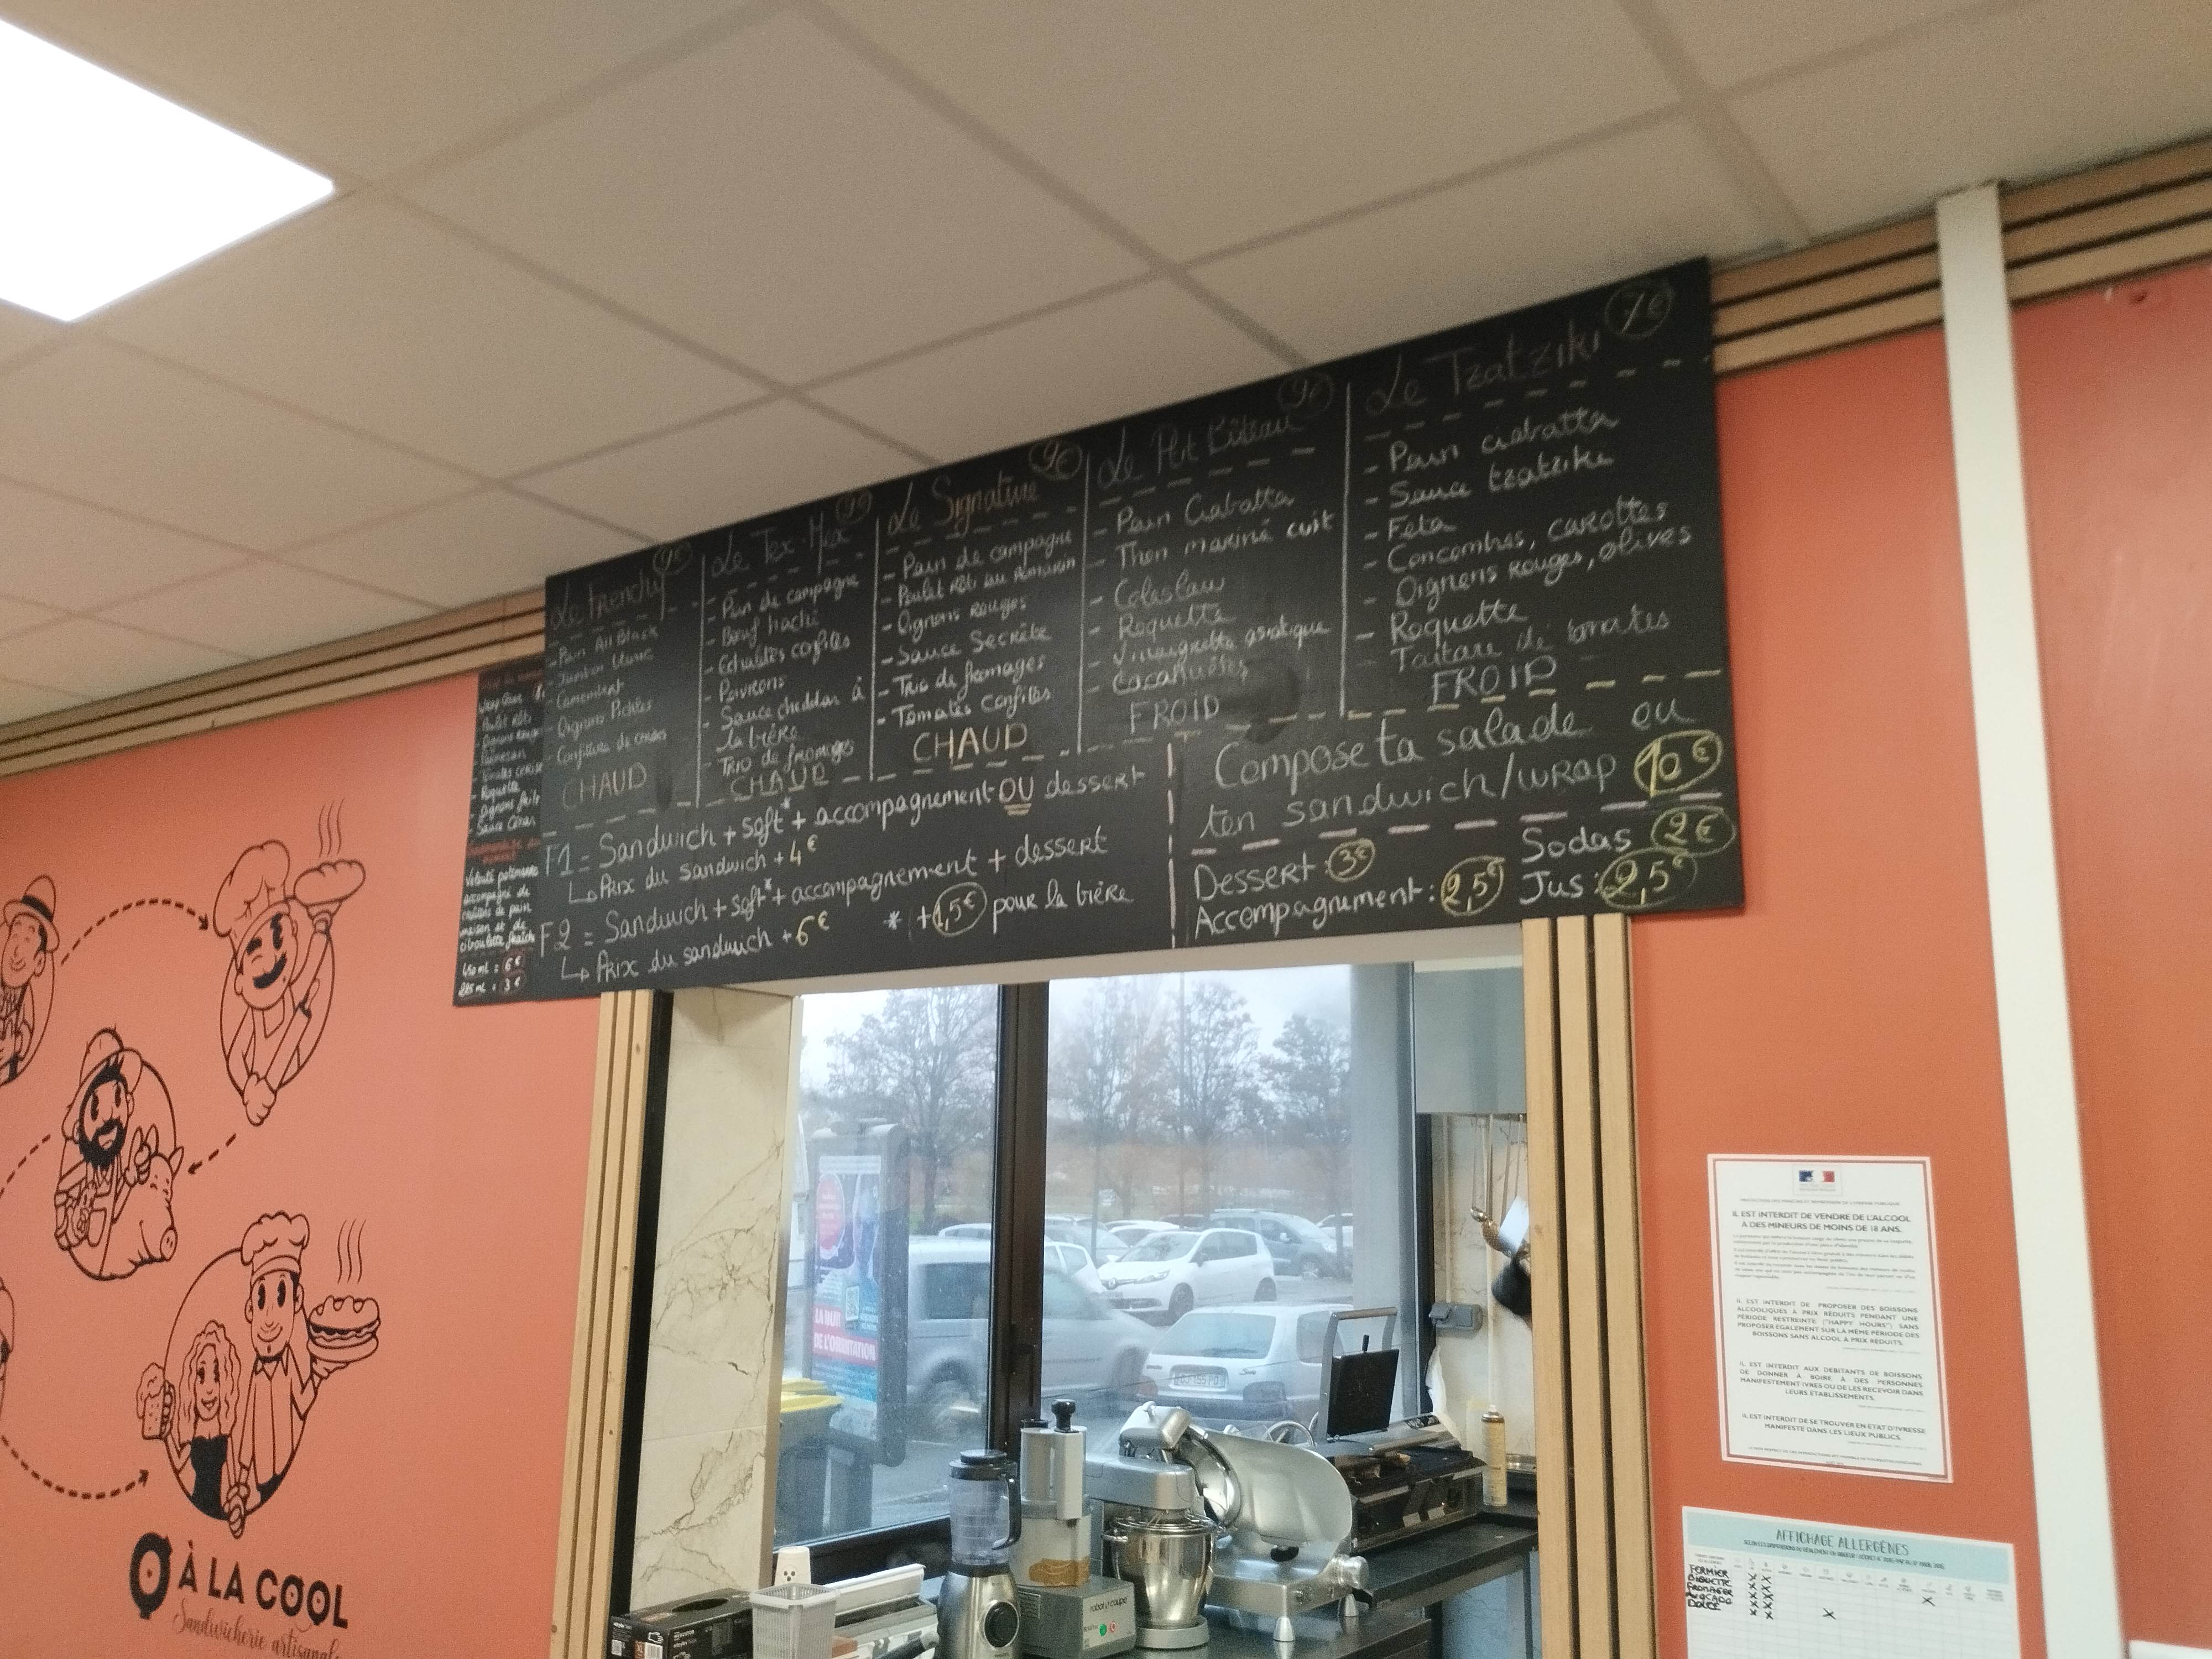 Le Frenchy 9€
- Pain All Black
- Jambon blanc
- Camembert
- Oignons Pickles
- Confiture de
CHAUD
Le Tex-Mex
- Pain de campagne
- Bœuf haché
- Echalotes confites
- Poivrons
- Sauce cheddar à
la bière
- Trio de fromages
CHAUD
Le Signature 9€
- Pain de campagne
- Poulet rôti au Romarin
- Oignons rouges
- Sauce Secrète
- Trio de fromages
- Tomates confites
CHAUD
Le Ptit 9€
- Pain Ciabatta
- Thon mariné cuit
- Coleslaw
- Roquette
- Vinaigrette asiatique
- Cacahuètes
FROID
Le Tzatziki 7€
- Pain ciabatta
- Sauce tzatziki
- Feta
- Concombres, carottes
- Oignons rouges, olives
- Roquette
- Tartare de tomates
FROID
F1 = Sandwich + soft* + accompagnement OU dessert
↳ Prix du sandwich + 4€
F2 = Sandwich + soft* + accompagnement + dessert
↳ Prix du sandwich + 6€
* + 1,5€ pour la bière
Compose ta salade ou
ton sandwich/wrap 10€
Dessert : 3€
Accompagnement : 2,5€
Sodas 2€
Jus : 2,5€
- Poulet rôti
- Parmesan
- Roquette
- Sauce César
Velouté potimarron
accompagné de
croûtons de pain
maison et de
ciboulette fraîche
450 mL = 6€
225 mL = 3€
À LA COOL
Sandwicherie artisanale
LA NUIT
DE L'ORIENTATION
robot coupe
IL EST INTERDIT DE VENDRE DE L'ALCOOL
À DES MINEURS DE MOINS DE 18 ANS.
IL EST INTERDIT DE PROPOSER DES BOISSONS
ALCOOLIQUES À PRIX RÉDUITS PENDANT UNE
PÉRIODE RESTREINTE ("HAPPY HOURS") SANS
PROPOSER ÉGALEMENT SUR LA MÊME PÉRIODE DES
BOISSONS SANS ALCOOL À PRIX RÉDUITS.
IL EST INTERDIT AUX DÉBITANTS DE BOISSONS
DE DONNER À BOIRE À DES PERSONNES
MANIFESTEMENT IVRES OU DE LES RECEVOIR DANS
LEURS ÉTABLISSEMENTS.
IL EST INTERDIT DE SE TROUVER EN ÉTAT D'IVRESSE
MANIFESTE DANS LES LIEUX PUBLICS.
AFFICHAGE ALLERGÈNES
FERMIER
BIQUETTE
FROMAGER
AVOCADO
DOLCE